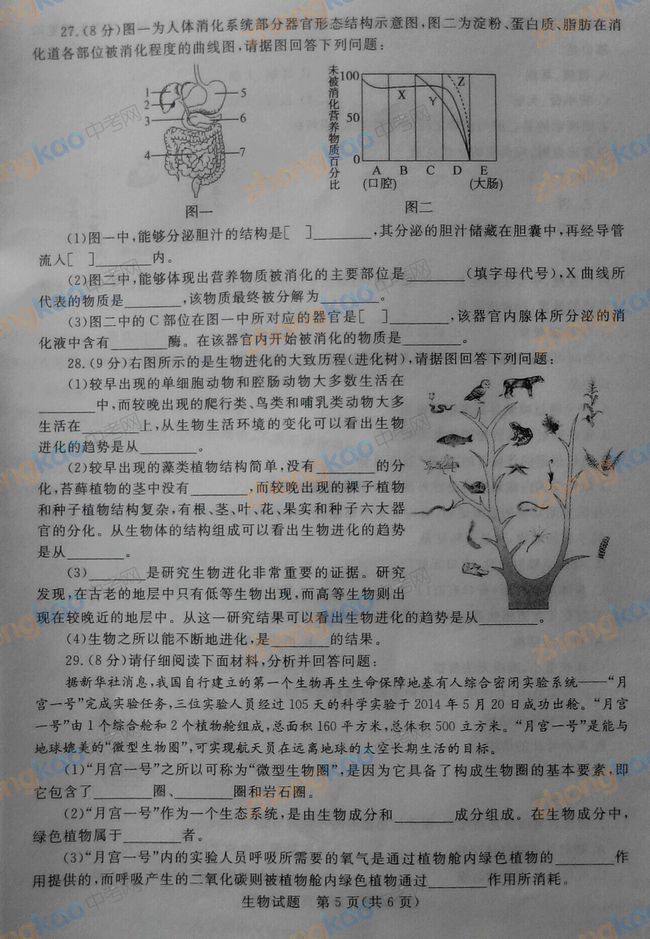 27.(8分)图一为人体消化系统部分器官形态结构示意图,图二为淀粉、蛋白质、脂肪在消
化道各部位被消化程度的曲线图,请据图回答下列问题:
1
2
3
4
5
6
7
图一
未被消化营养物质百分比
100
50
0
X
Y
Z
A B C D E
(口腔) (大肠)
图二
(1)图一中,能够分泌胆汁的结构是[ ]________,其分泌的胆汁储藏在胆囊中,再经导管
流入[ ]________内。
(2)图二中,能够体现出营养物质被消化的主要部位是________(填字母代号),X曲线所
代表的物质是________,该物质最终被分解为________。
(3)图二中的C部位在图一中所对应的器官是[ ]________,该器官内腺体所分泌的消
化液中含有________酶。在该器官内开始被消化的物质是________。
28.(9分)右图所示的是生物进化的大致历程(进化树),请据图回答下列问题:
(1)较早出现的单细胞动物和腔肠动物大多数生活在
________中,而较晚出现的爬行类、鸟类和哺乳类动物大多
生活在________上,从生物生活环境的变化可以看出生物
进化的趋势是从________。
(2)较早出现的藻类植物结构简单,没有________的分
化,苔藓植物的茎中没有________,而较晚出现的裸子植物
和种子植物结构复杂,有根、茎、叶、花、果实和种子六大器
官的分化。从生物体的结构组成可以看出生物进化的趋势
是从________。
(3)________是研究生物进化非常重要的证据。研究
发现,在古老的地层中只有低等生物出现,而高等生物则出
现在较晚近的地层中。从这一研究结果可以看出生物进化的趋势是从________。
(4)生物之所以能不断地进化,是________的结果。
29.(8分)请仔细阅读下面材料,分析并回答问题:
据新华社消息,我国自行建立的第一个生物再生生命保障地基有人综合密闭实验系统——“月
宫一号”完成实验任务,三位实验人员经过105天的科学实验于2014年5月20日成功出舱。“月宫
一号”由1个综合舱和2个植物舱组成,总面积160平方米,总体积500立方米。“月宫一号”是能与
地球媲美的“微型生物圈”,可实现航天员在远离地球的太空长期生活的目标。
(1)“月宫一号”之所以可称为“微型生物圈”,是因为它具备了构成生物圈的基本要素,即
它包含了________圈、________圈和岩石圈。
(2)“月宫一号”作为一个生态系统,是由生物成分和________成分组成。在生物成分中,
绿色植物属于________者。
(3)“月宫一号”内的实验人员呼吸所需要的氧气是通过植物舱内绿色植物的________作
用提供的,而呼吸产生的二氧化碳则被植物舱内绿色植物通过________作用所消耗。
生物试题 第5页(共6页)
zhongkao
中考网